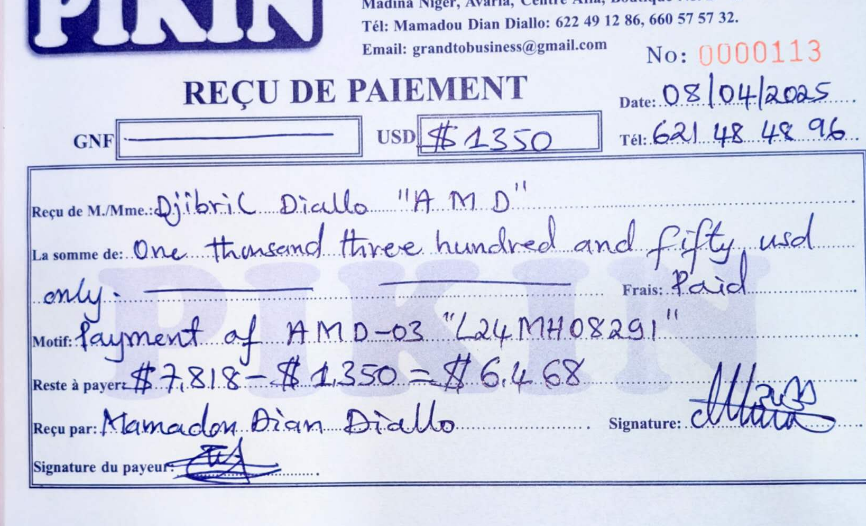 PIKIN
Madina Niger, Avaria, Centre
Tél: Mamadou Dian Diallo: 622 49 12 86, 660 57 57 32.
Email: grandtobusiness@gmail.com
No: 0000113
REÇU DE PAIEMENT
Date: 08/04/2025
GNF USD $ 1350 Tél: 621 48 48 96
Reçu de M./Mme.: Djibril Diallo "A M D"
La somme de: One thousand three hundred and fifty usd
only. Frais: Paid
Motif: Payment of AMD-03 "L24MH08291"
Reste à payer: $ 7,818 - $ 1,350 = $ 6,468
Reçu par: Mamadou Dian Diallo Signature:
Signature du payeur:
PIKIN